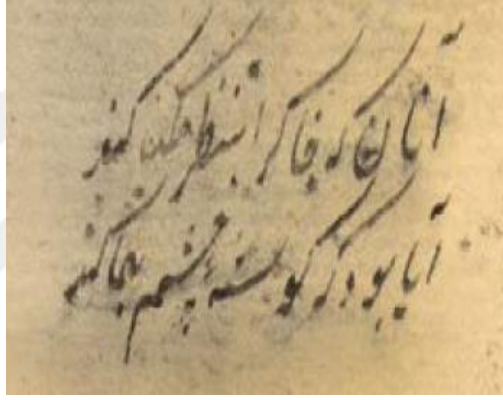 آنان که خاک را بنظر کنند
آیا بود که گوشه چشم بما کنند